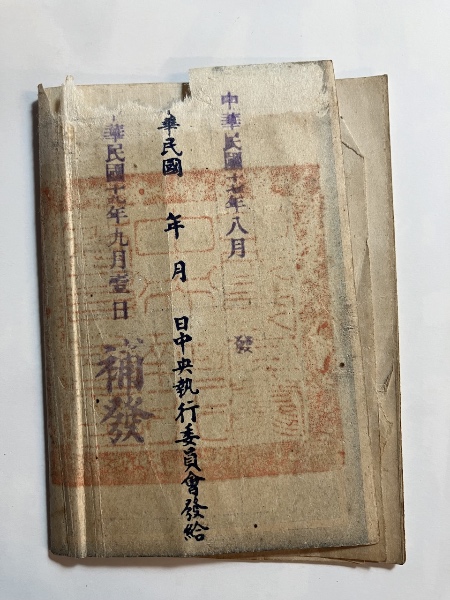 中華民國十七年八月
發
華民國 年 月 日中央執行委員會發給
華民國十九年九月壹日
補發